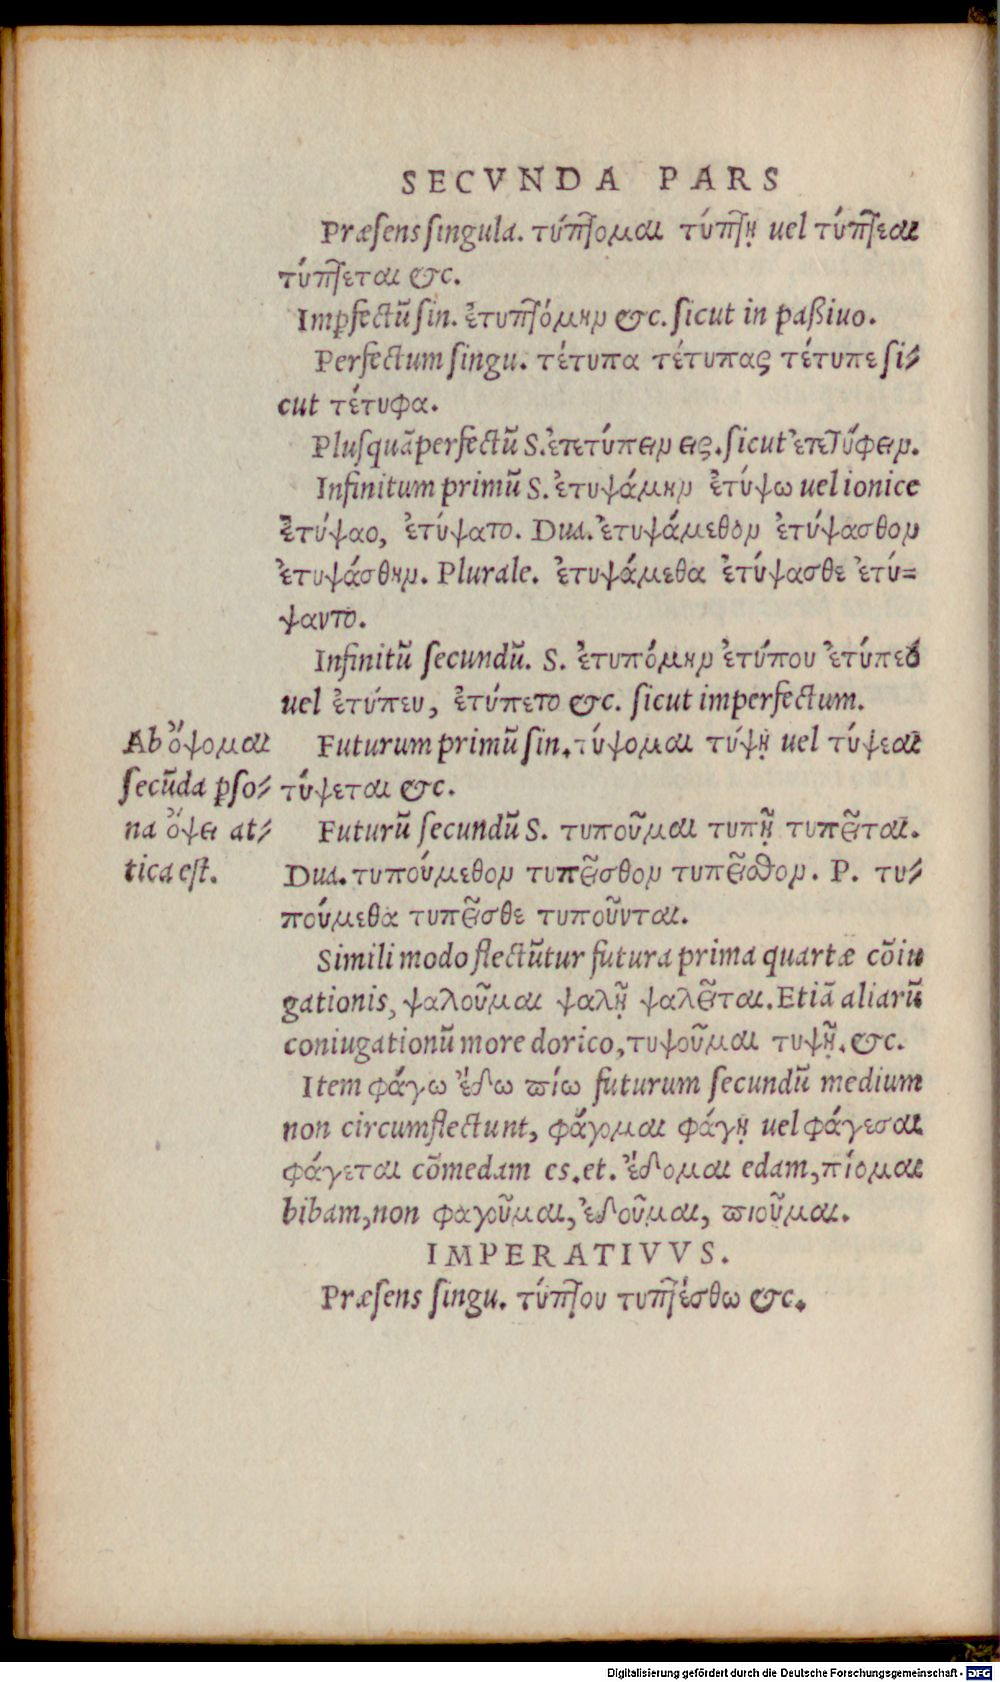 SECVNDA PARS
Præſens ſingula. τύπτομαι τύπτῃ uel τύπτεαι
τύπτεται &c.
Imꝑfectũ ſin. ἐτυπτόμην &c. ſicut in paßiuo.
Perfectum ſingu. τέτυπα τέτυπας τέτυπε ſi⸗
cut τέτυφα.
Pluſquãperfectũ S. ἐπετύπειν εις. ſicut ἐπετύφειν.
Infinitum primũ S. ἐτυψάμην ἐτύψω uel ionice
ἐτύψαο, ἐτύψατο. Dua. ἐτυψάμεθον ἐτύψασθον
ἐτυψάσθην. Plurale. ἐτυψάμεθα ἐτύψασθε ἐτύ⸗
ψαντο.
Infinitũ ſecundũ. S. ἐτυπόμην ἐτύπου ἐτύπεο
uel ἐτύπευ, ἐτύπετο &c. ſicut imperfectum.
Futurum primũ ſin. τύψομαι τύψῃ uel τύψεαι
τύψεται &c.
Ab ὄψομαι
ſecũda ꝑſo⸗
na ὄψει at⸗
tica eſt.
Futurũ ſecundũ S. τυποῦμαι τυπῇ τυπεῖται.
Dua. τυπούμεθον τυπεῖσθον τυπεῖσθον. P. τυ⸗
πούμεθα τυπεῖσθε τυποῦνται.
Simili modo flectũtur futura prima quartæ cõiu
gationis, ψαλοῦμαι ψαλῇ ψαλεῖται. Etiã aliarũ
coniugationũ more dorico, τυψοῦμαι τυψῇ. &c.
Item φάγω ἔδω πίω futurum ſecundũ medium
non circumflectunt, φάγομαι φάγῃ uel φάγεσαι
φάγεται cõmedam es. et. ἔδομαι edam, πίομαι
bibam, non φαγοῦμαι, ἐδοῦμαι, πιοῦμαι.
IMPERATIVVS.
Præſens ſingu. τύπτου τυπτέσθω &c.
Digitalisierung gefördert durch die Deutsche Forschungsgemeinschaft - DFG